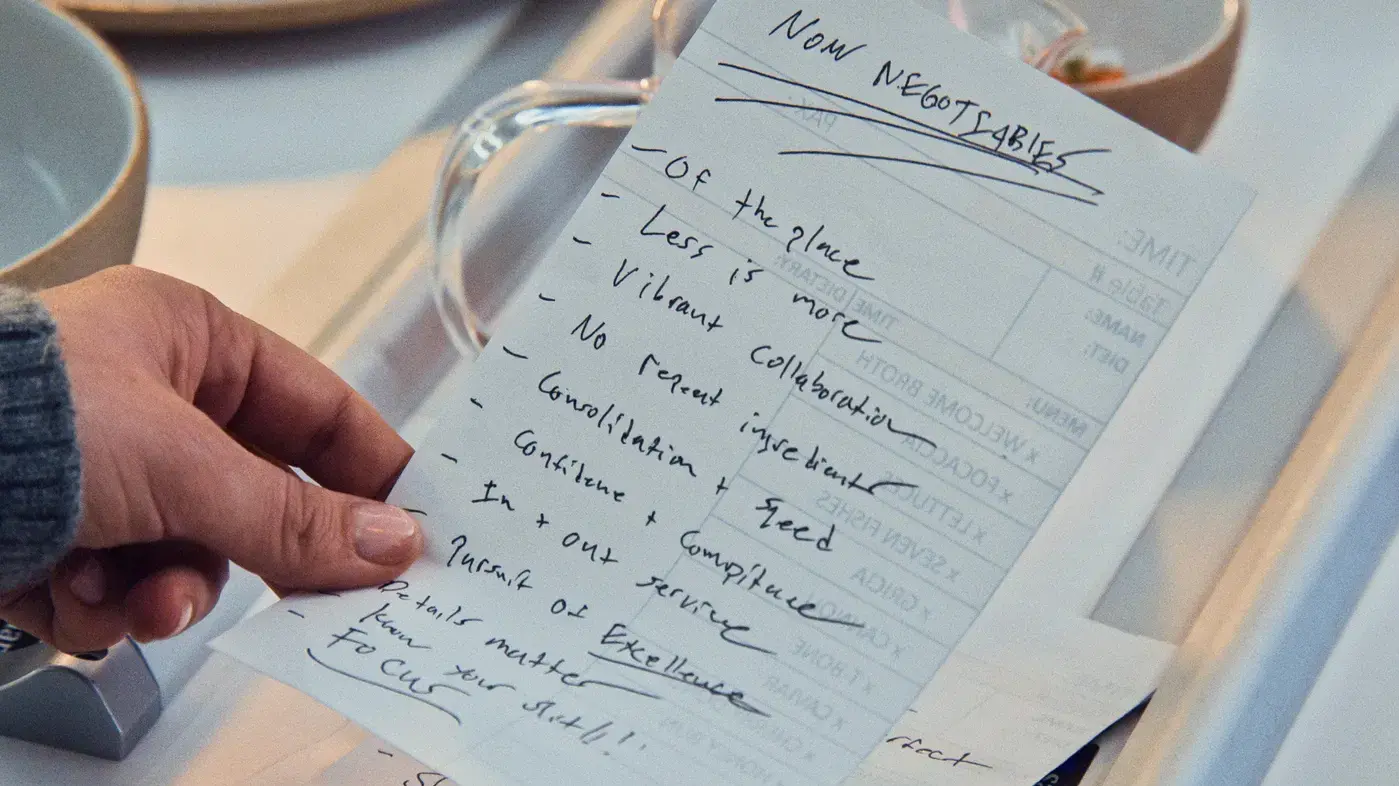 NON NEGOTIABLES
- Of the place
- Less is more
- Vibrant Collaboration
- No repeat ingredients
- Consolidation + speed
- Confidence + Compitence
- In + out service
- Pursuit of Excellence
- Details matter
- know your shit!!!
- FOCUS
rfect
PAX:
TIME:
Table #
NAME:
DIET:
TIME | DIETARY:
MENU:
X WELCOME BROTH
X FOCACCIA
X LETTUCES
X SEVEN FISHES
X GRICIA
X T BONE
X CAVIAR